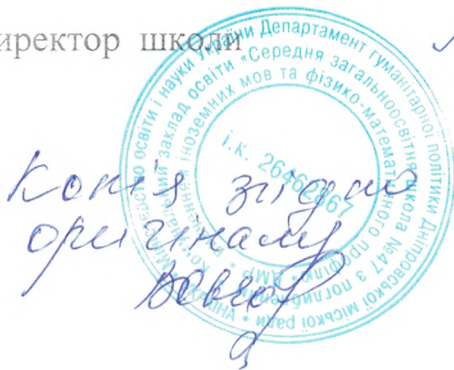 иректор школи
Міністерство освіти і науки України Департамент гуманітарної політики Дніпровської міської ради
Комунальний заклад освіти «Середня загальноосвітня школа №47 з поглибленим
вивченням іноземних мов та фізико-математичного профілю» ДМР
УКРАЇНА
і.к.
Копія згідно
оригіналу